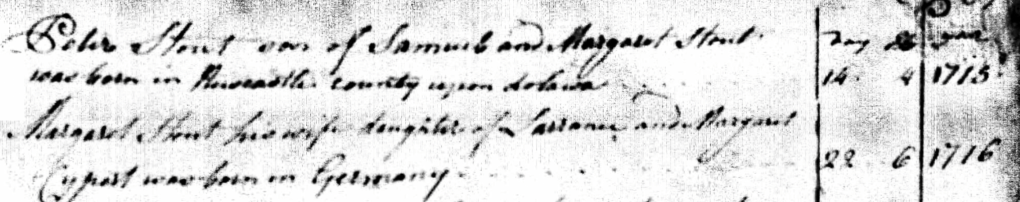 Peter Stout son of Samuel and Margaret Stout day year
was born in Newcastle county upon dolawa 14 4 1715
Margaret Stout his wife daughter of Larrance and Margaret
Cypart was born in Germany 22 6 1716